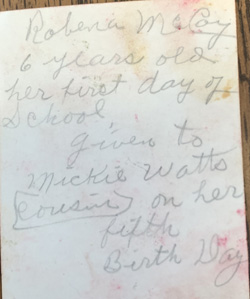 Robena McCoy
6 years old
her first day of
School
given to
Mickie Watts
(cousin) on her
fifth
Birth Day